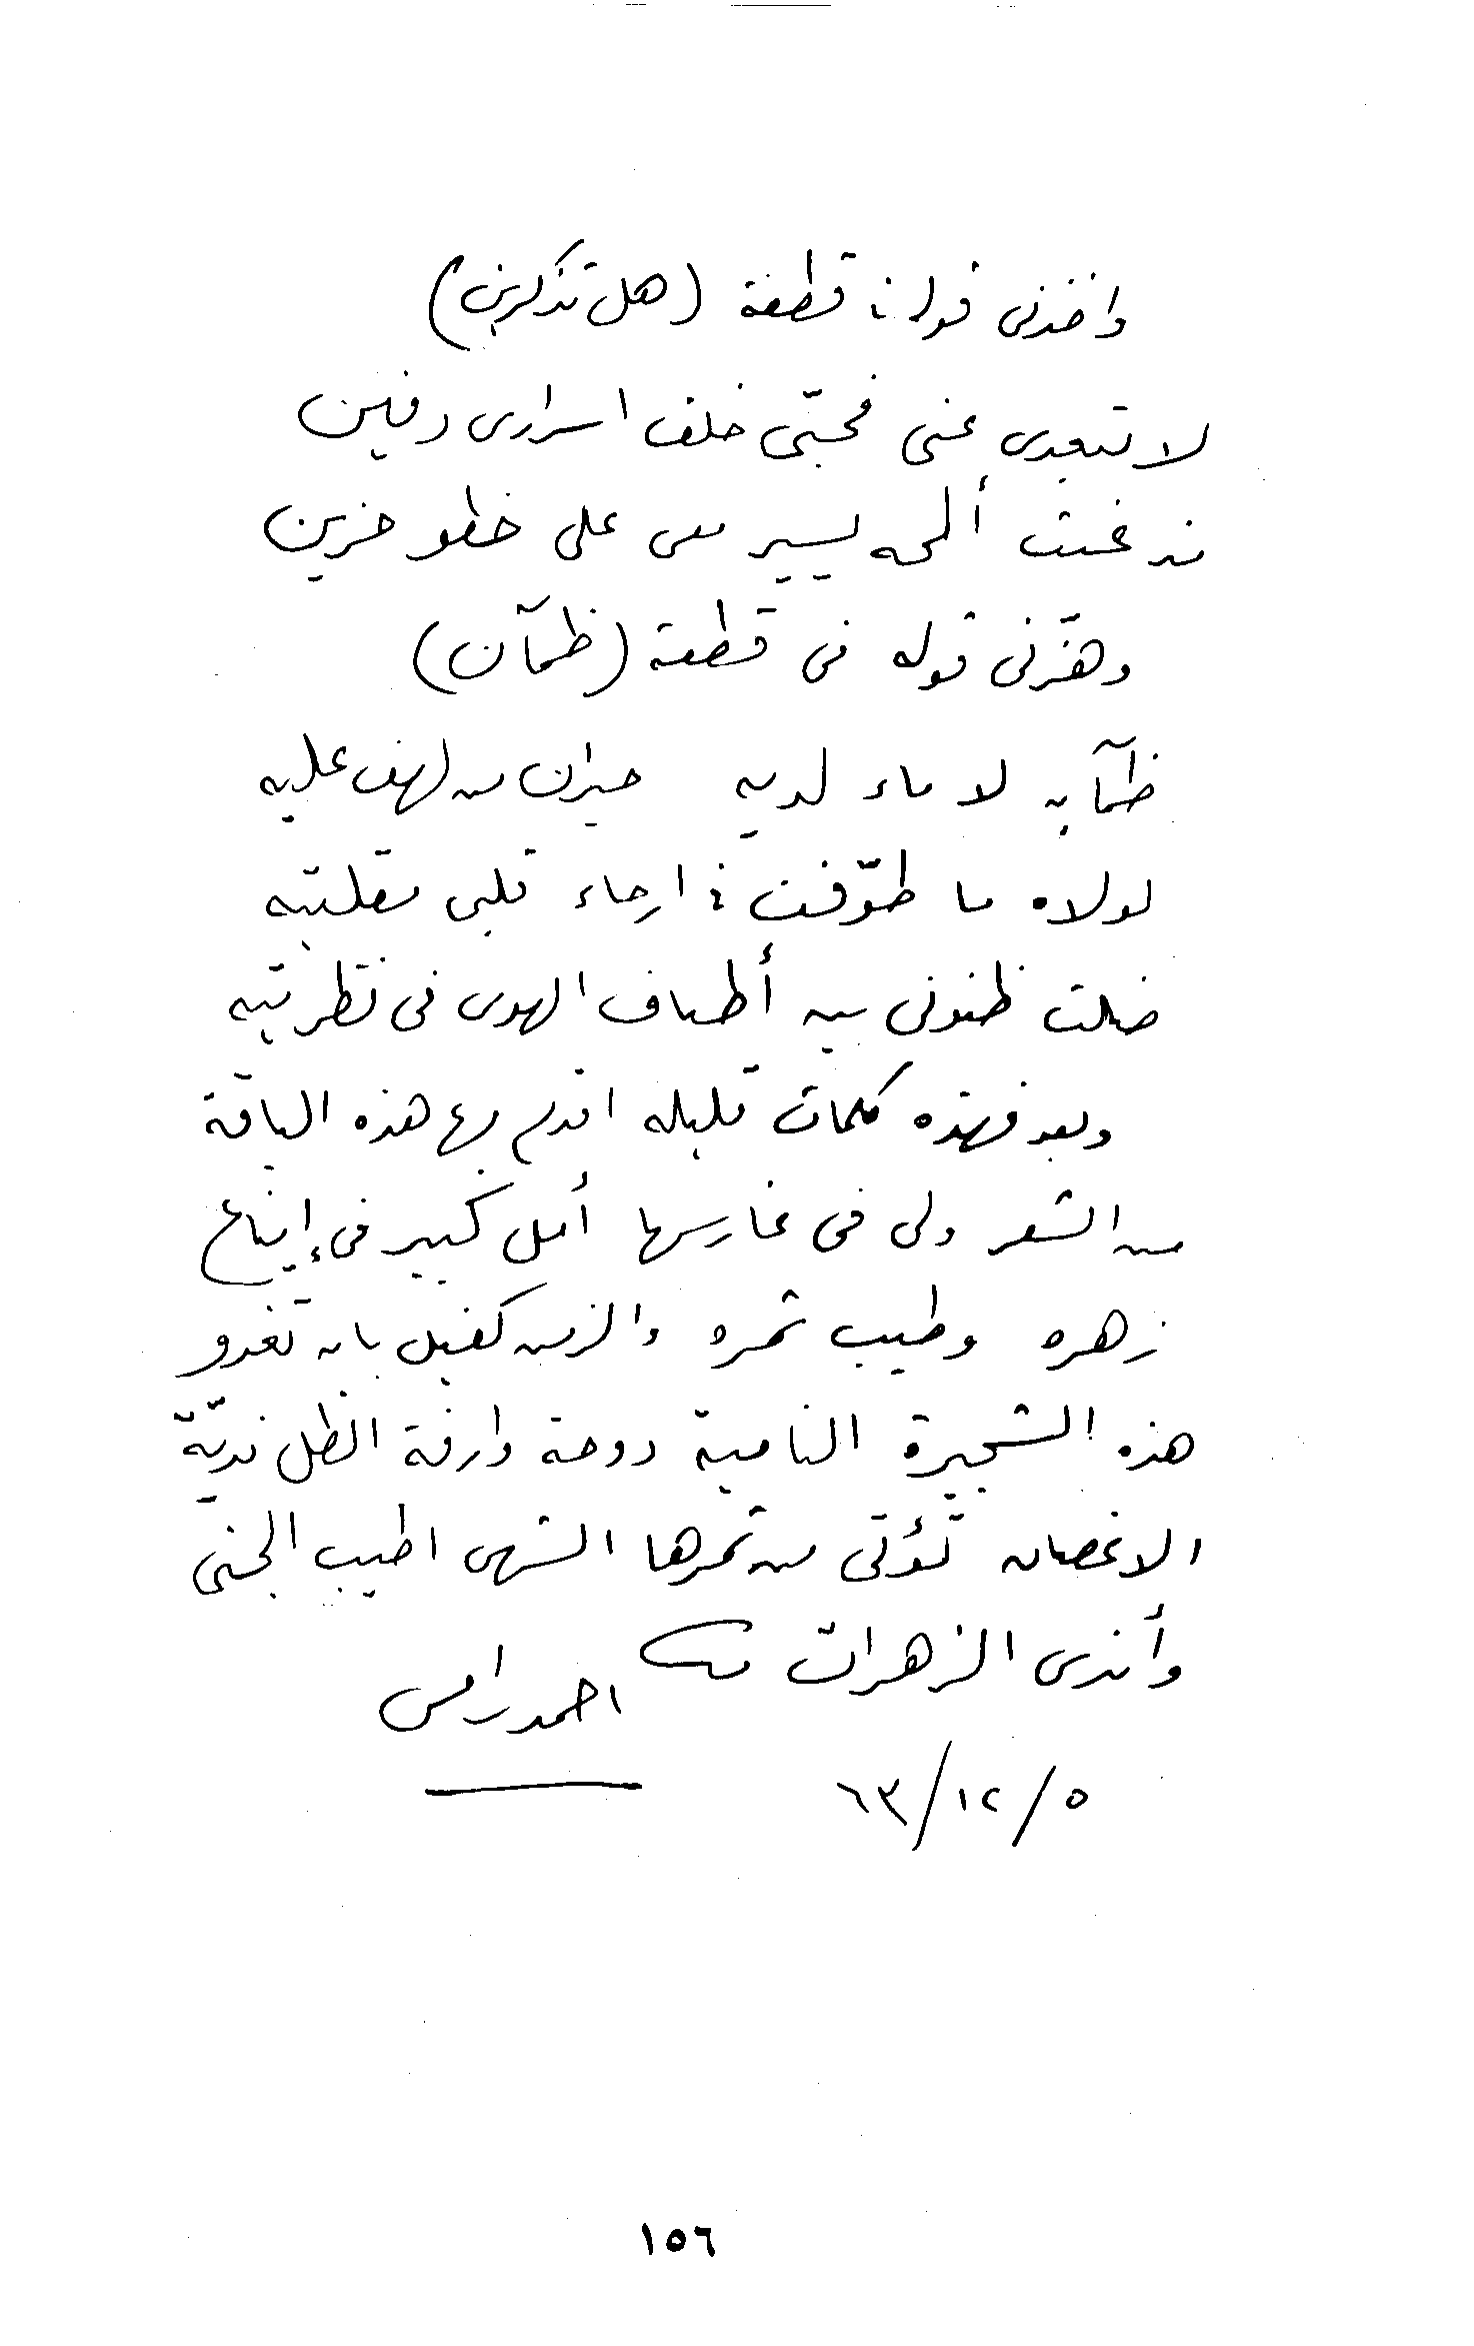 واخذنى قوله فى قطعة (هل تذكرين)
لا تبعدى عنى فحبّى خلف اسرارى دفين
قد غبت ألمحه يسير معى على خطو حزين
وهزّنى قوله فى قطعة (ظمآن)
ظمآن لا ماء لديه حيران من لهف عليه
لولاه ما طوّفت فى ارجاء قلبى مقلتيه
ضلت ظنونى بين أطياف الهوى فى نظرتيه
وبعد فهذه كلمات قليله اقدم بها هذه الباقة
من الشعر ولى فى غارسها أمل كبير فى إيناع
زهره وطيب ثمره والزمن كفيل بان تغدو
هذه الشجيرة النامية دوحة وارفة الظل نديّة
الاغصان تؤتى من ثمرها الشهى اطيب الجنى
وأندى الزهرات
احمد رامى
٥/١٢/٦٣
١٥٦